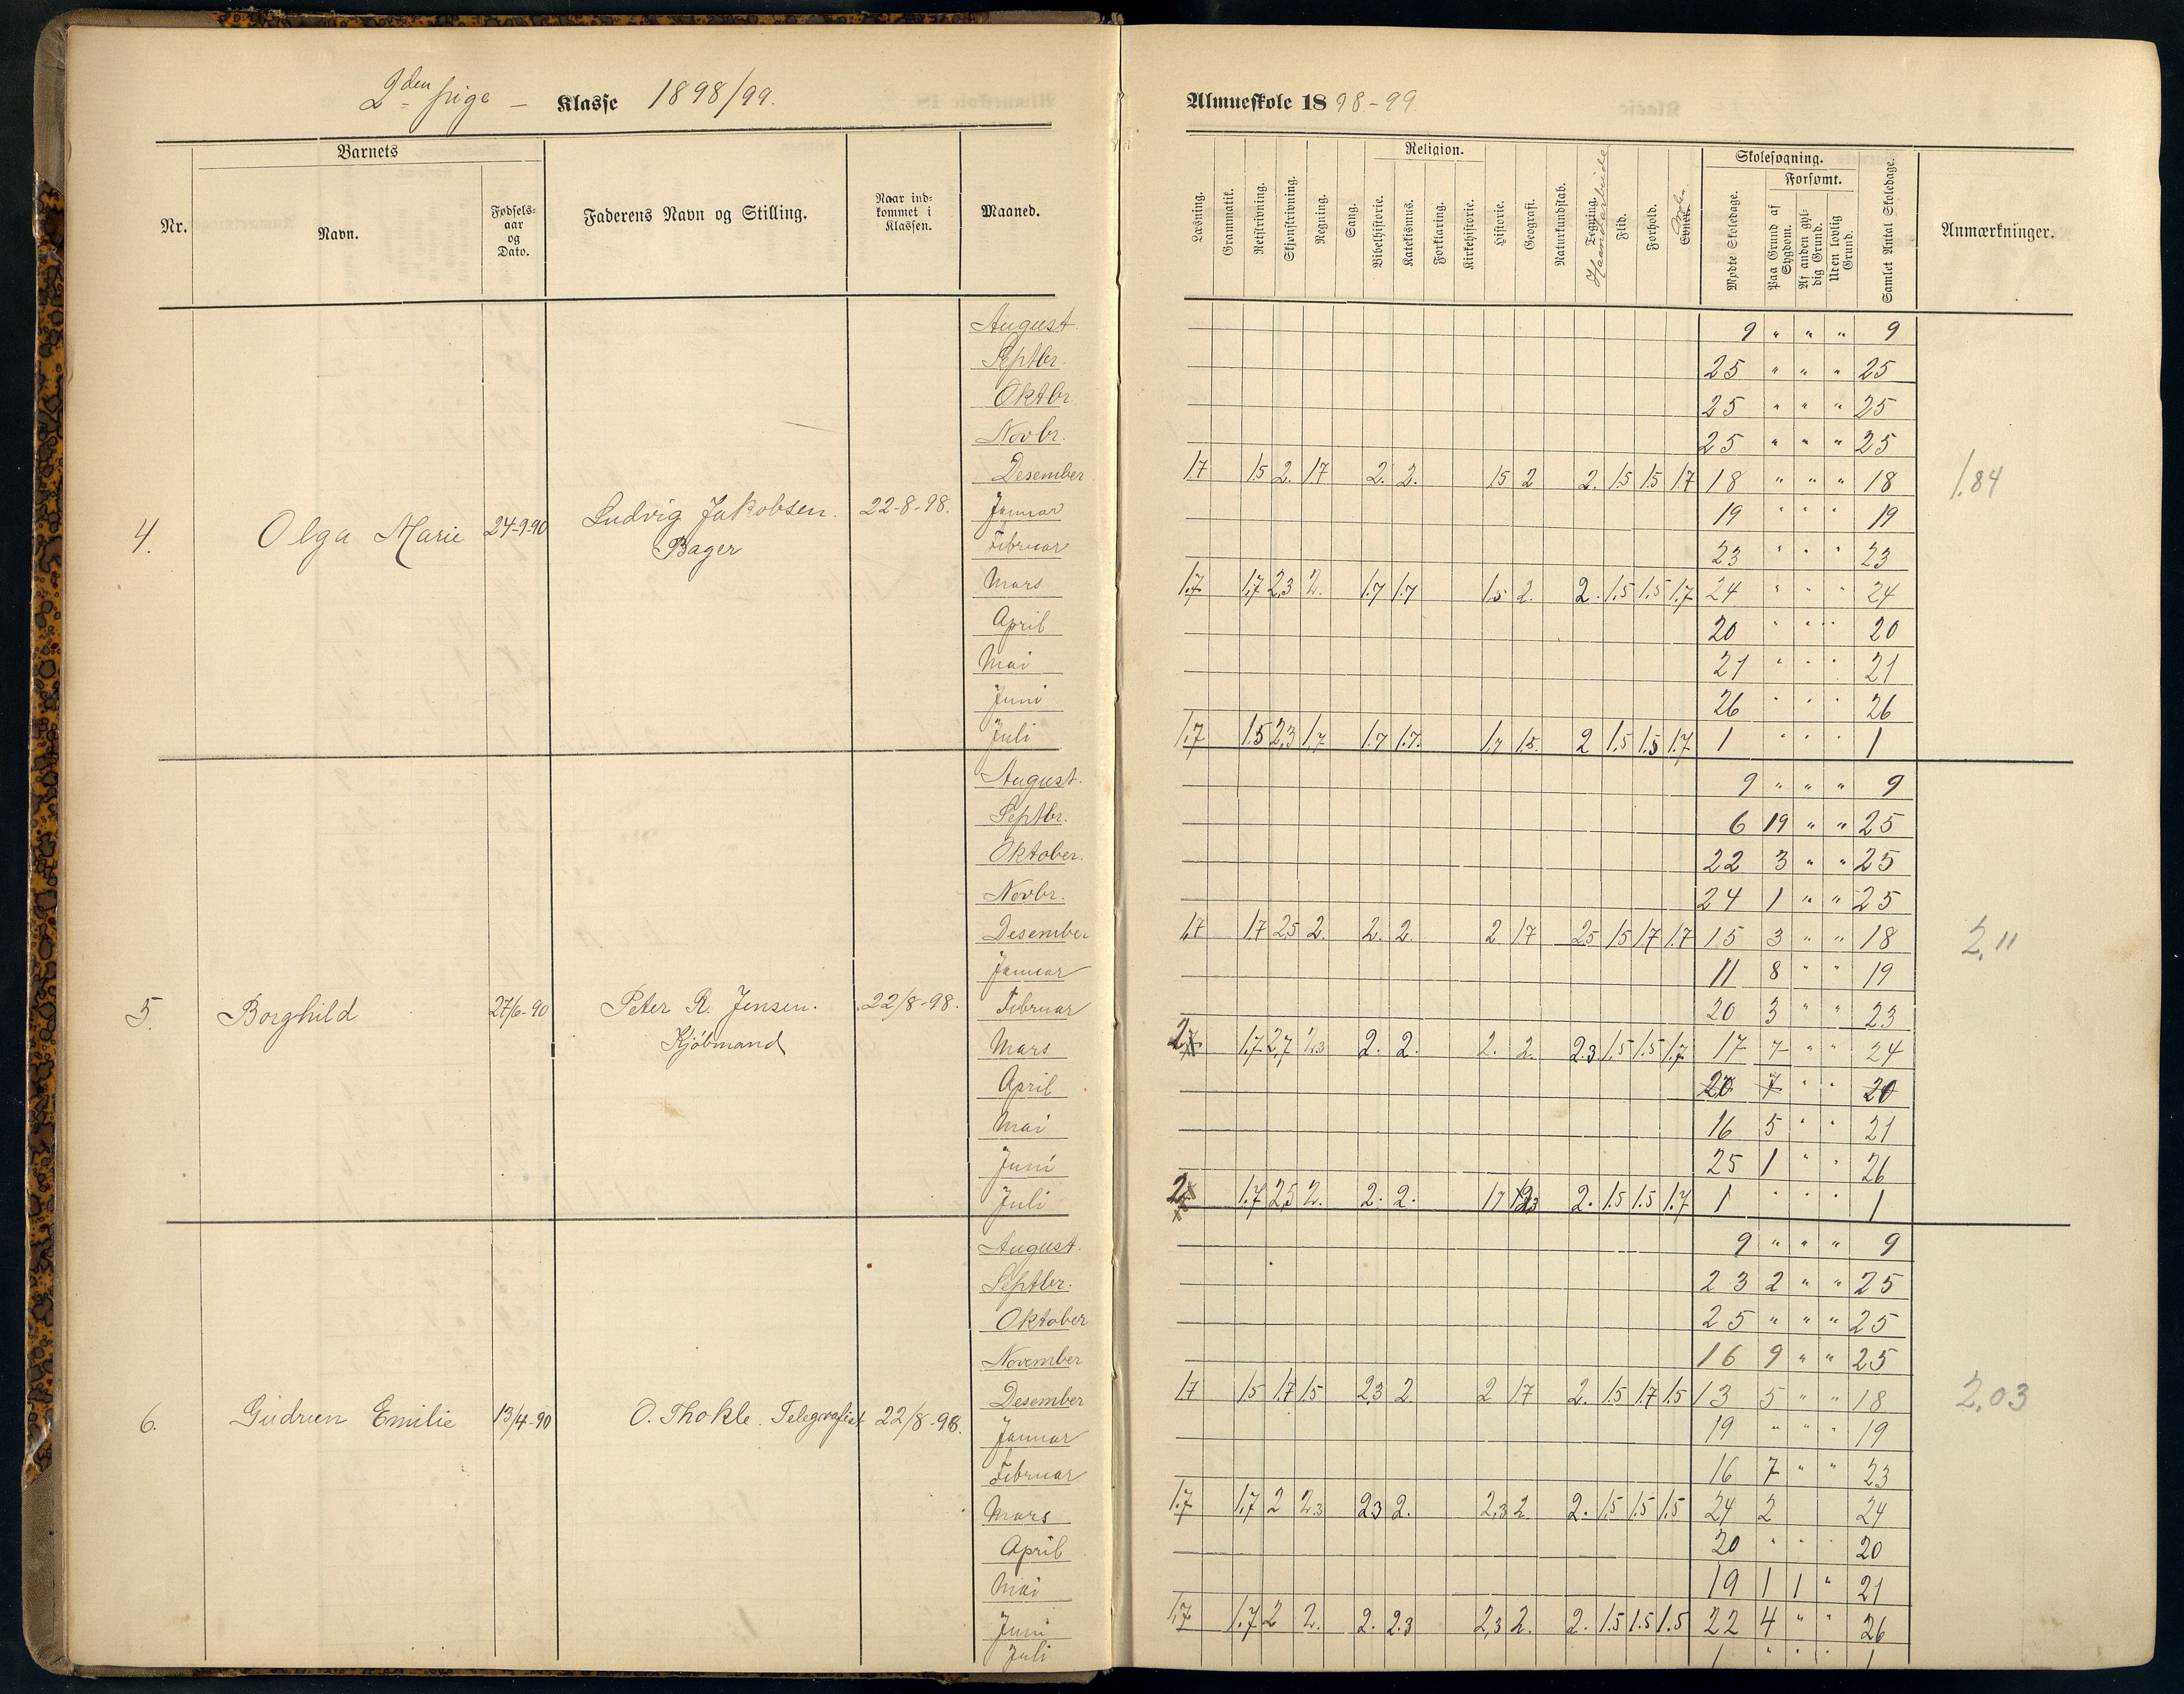 2den pige – Klasse 1898/99.
Nr.
Barnets
Navn.
Fødsels-
aar
og
Dato.
Faderens Navn og Stilling.
Naar ind-
kommet i
Klassen.
Maaned.
4. Olga Marie 24-9-90 Ludvig Jakobsen. 22-8-98.
Bager
August.
Septbr.
Oktbr.
Novbr.
Desember
Januar
Februar
Mars
April
Mai
Juni
Juli
5. Borghild 27/6-90 Peter R. Jensen. 22/8-98.
Kjøbmand
August.
Septbr.
Oktober.
Novbr.
Desember
Januar
Februar
Mars
April
Mai
Juni
Juli
6. Gudrun Emilie 13/4-90 O. Thokle. Telegrafist 22/8-98.
August.
Septbr.
Oktober
November
Desember
Januar
Februar
Mars
April
Mai
Juni
Juli
Almueskole 1898-99.
Læsning.
Grammatik.
Retskrivning.
Skjønskrivning.
Regning.
Sang.
Religion.
Bibelhistorie.
Katekismus.
Forklaring.
Kirkehistorie.
Historie.
Geografi.
Naturkundskab.
Tegning.
Haandarbeide
Flid.
Forhold.
Evner.
Skolesøgning.
Mødte Skoledage.
Forsømt.
Paa Grund af
Sygdom.
Af anden gyl-
dig Grund.
Uden lovlig
Grund.
Samlet Antal Skoledage.
Anmærkninger.
9 " " " 9
25 " " " 25
25 " " " 25
25 " " " 25
1.7 1.5 2. 1.7 2. 2. 1.5 2 2. 1.5 1.5 1.7 18 " " " 18 1.84
19 " " " 19
23 " " " 23
1.7 1.7 2.3 2. 1.7 1.7 1.5 2. 2. 1.5 1.5 1.7 24 " " " 24
20 " " " 20
21 " " " 21
26 " " " 26
1.7 1.5 2.3 1.7 1.7 1.7. 1.7 1.5. 2 1.5 1.5 1.7 1 " " " 1
9 " " " 9
6 19 " " 25
22 3 " " 25
24 1 " " 25
1.7 1.7 2.5 2. 2. 2. 2 1.7 2.5 1.5 1.7 1.7 15 3 " " 18 2,11
11 8 " " 19
20 3 " " 23
2 1.7 2.7 2.3 2. 2. 2. 2. 2.3. 1.5 1.5 1.7 17 7 " " 24
20 7 " " 20
16 5 " " 21
25 1 " " 26
2 1.7 2.5 2. 2. 2. 1.7 2.3 2. 1.5 1.5 1.7 1 " " " 1
9 " " " 9
23 2 " " 25
25 " " " 25
16 9 " " 25
1.7 1.5 1.7 1.5 2.3 2. 2 1.7 2. 1.5 1.7 1.5 13 5 " " 18 2.03
19 " " " 19
16 7 " " 23
1.7 1.7 2 2.3 2.3 2. 2.3 2 2. 1.5 1.5 1.5 24 2 24
20 " " " 20
19 1 1 " 21
1.7 1.7 2 2. 2. 2.3 2.3 2. 2. 1.5 1.5 1.5 22 4 " " 26
1 " " " 1